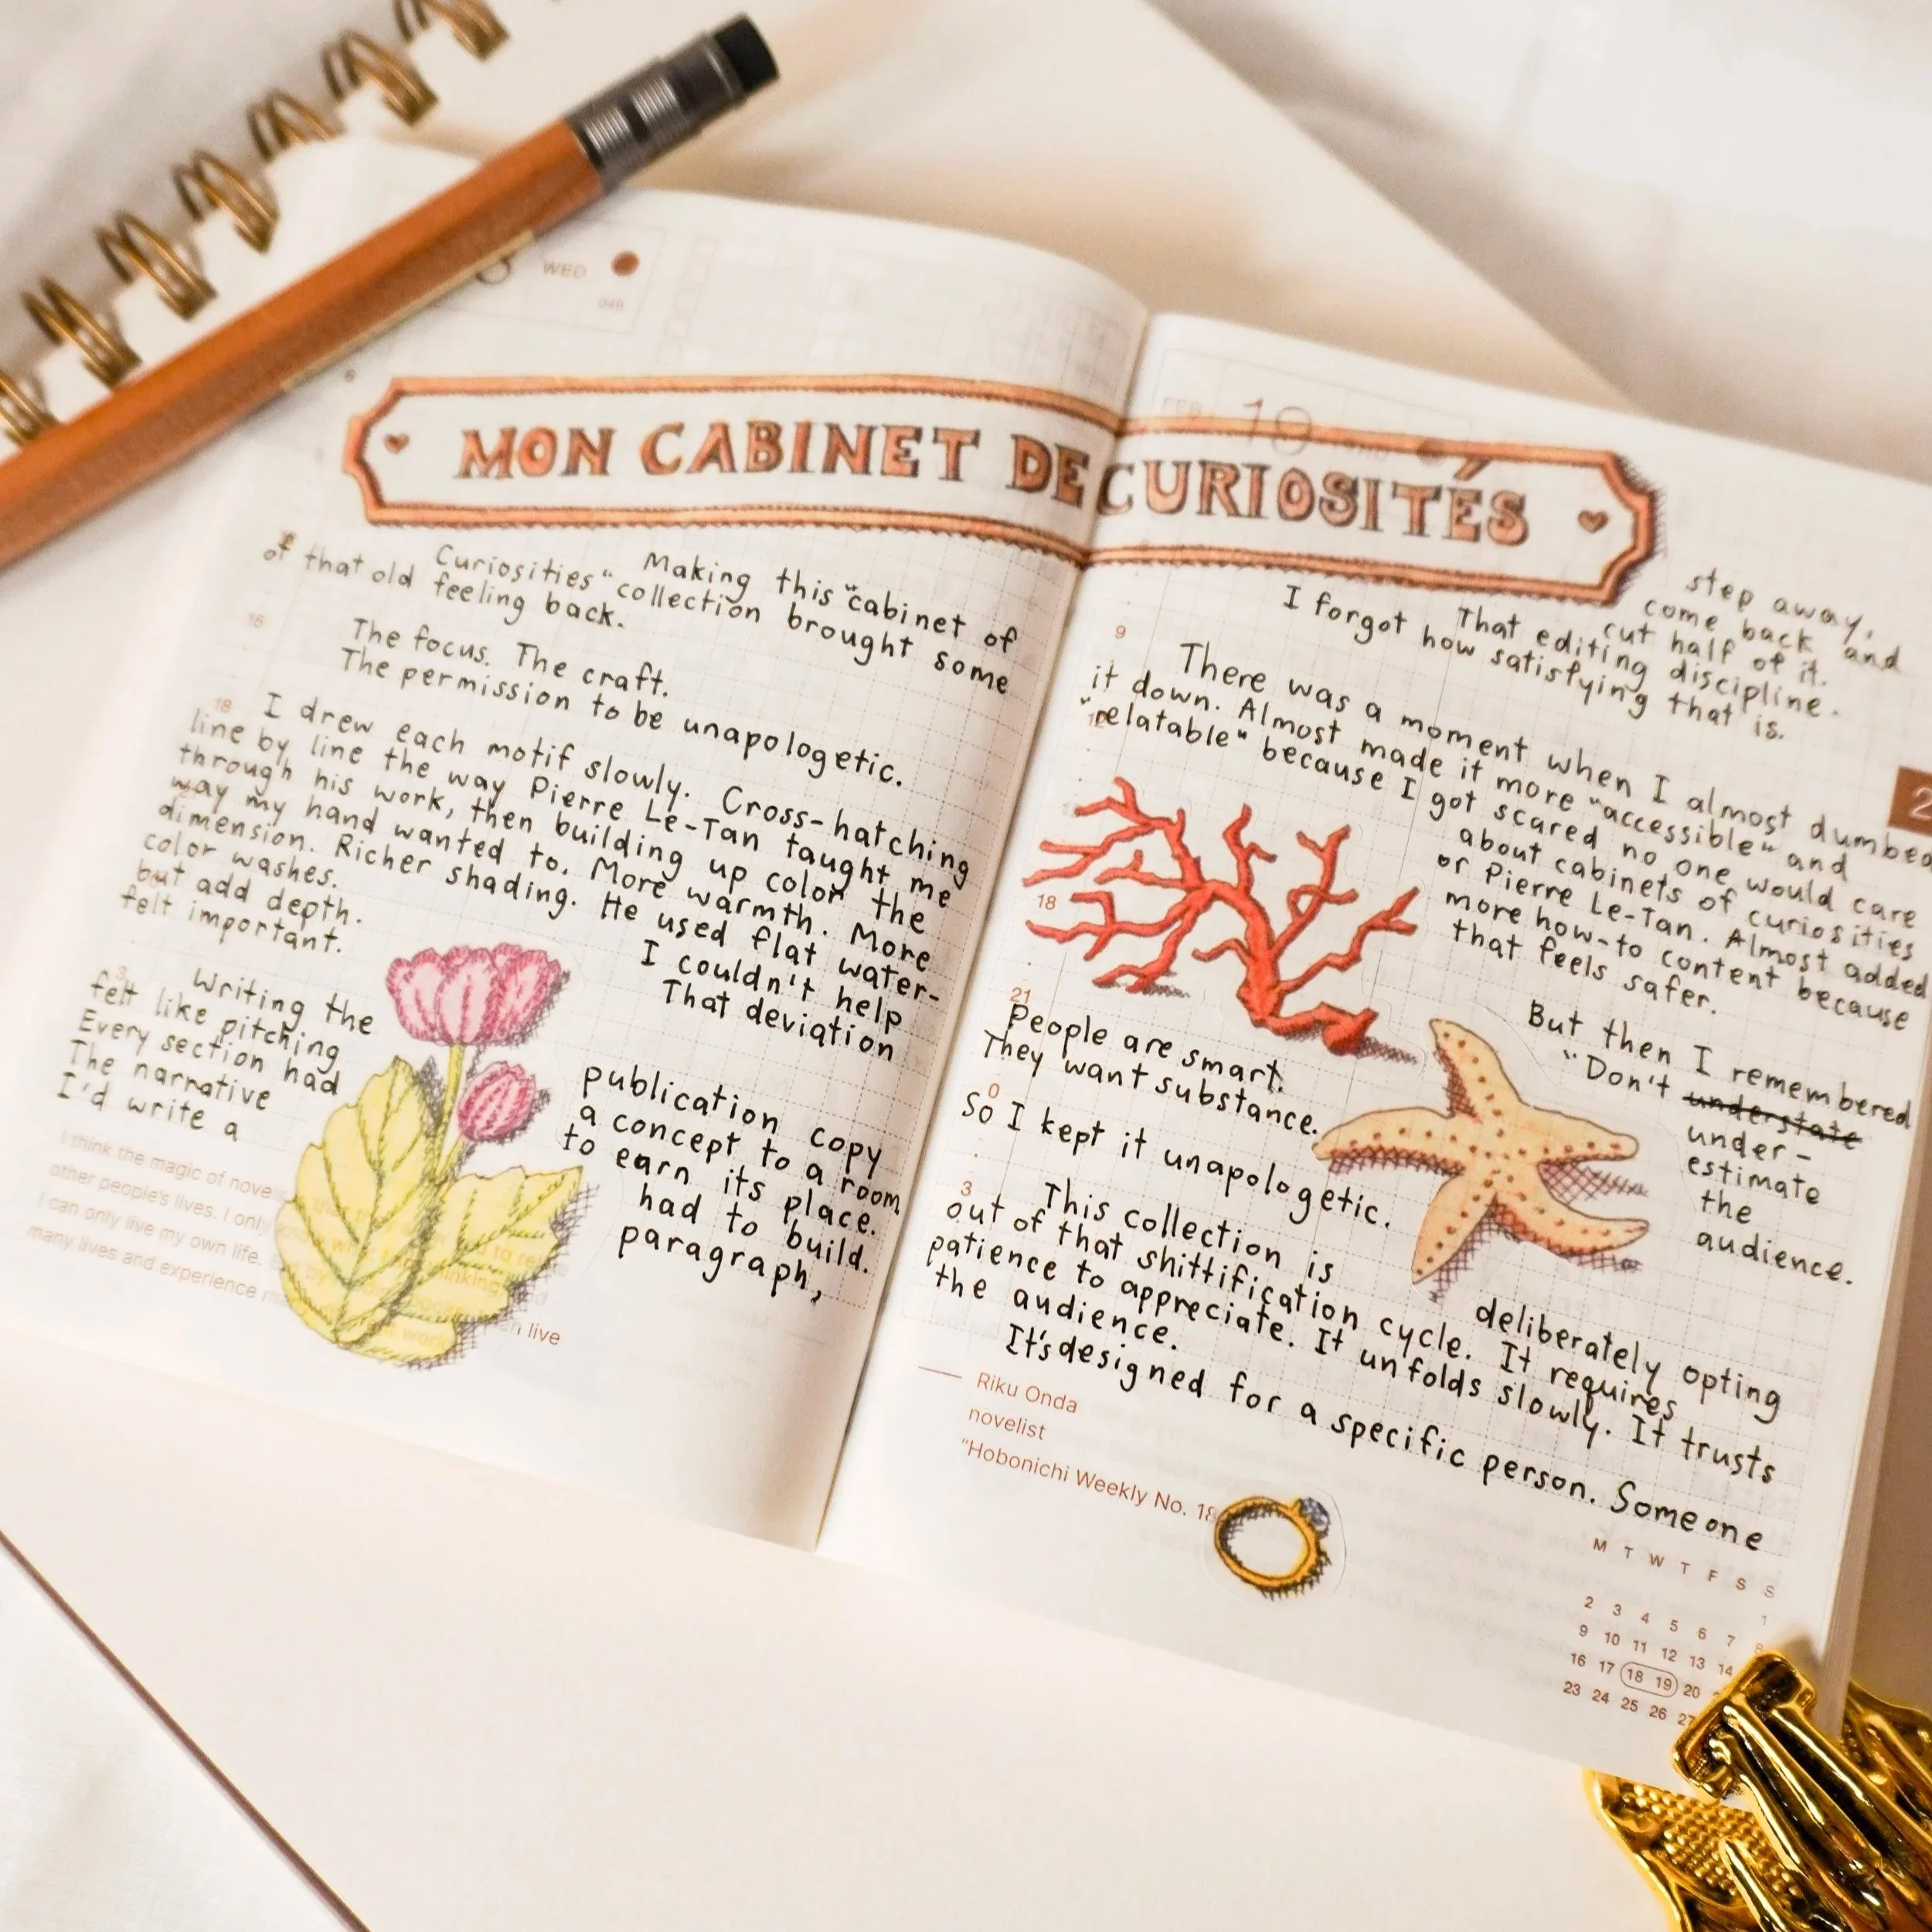 WED
049
FEB 19
MON CABINET DE CURIOSITÉS
Making this "cabinet of
Curiosities" collection brought some
of that old feeling back.
The focus. The craft.
The permission to be unapologetic.
I drew each motif slowly. Cross-hatching
line by line the way Pierre Le-Tan taught me
through his work, then building up color the
way my hand wanted to. More warmth. More
dimension. Richer shading. He used flat water-
color washes. I couldn't help
but add depth. That deviation
felt important.
Writing the publication copy
felt like pitching a concept to a room
Every section had to earn its place.
The narrative had to build.
I'd write a paragraph,
I think the magic of nove
other people's lives. I only
I can only live my own life.
many lives and experience
live
step away,
come back and
cut half of it.
That editing discipline.
I forgot how satisfying that is.
9
There was a moment when I almost dumbed
it down. Almost made it more "accessible" and
"relatable" because I got scared no one would care
about cabinets of curiosities
or Pierre Le-Tan. Almost added
more how-to content because
that feels safer.
18
2
But then I remembered
"Don't understate
under-
estimate
the
audience.
21
People are smart.
They want substance.
0
So I kept it unapologetic.
3
This collection is deliberately opting
out of that shittification cycle. It requires
patience to appreciate. It unfolds slowly. It trusts
the audience.
It's designed for a specific person. Someone
Riku Onda
novelist
"Hobonichi Weekly No. 18
M T W T F S S
1
2 3 4 5 6 7 8
9 10 11 12 13 14
16 17 18 19 20
23 24 25 26 27